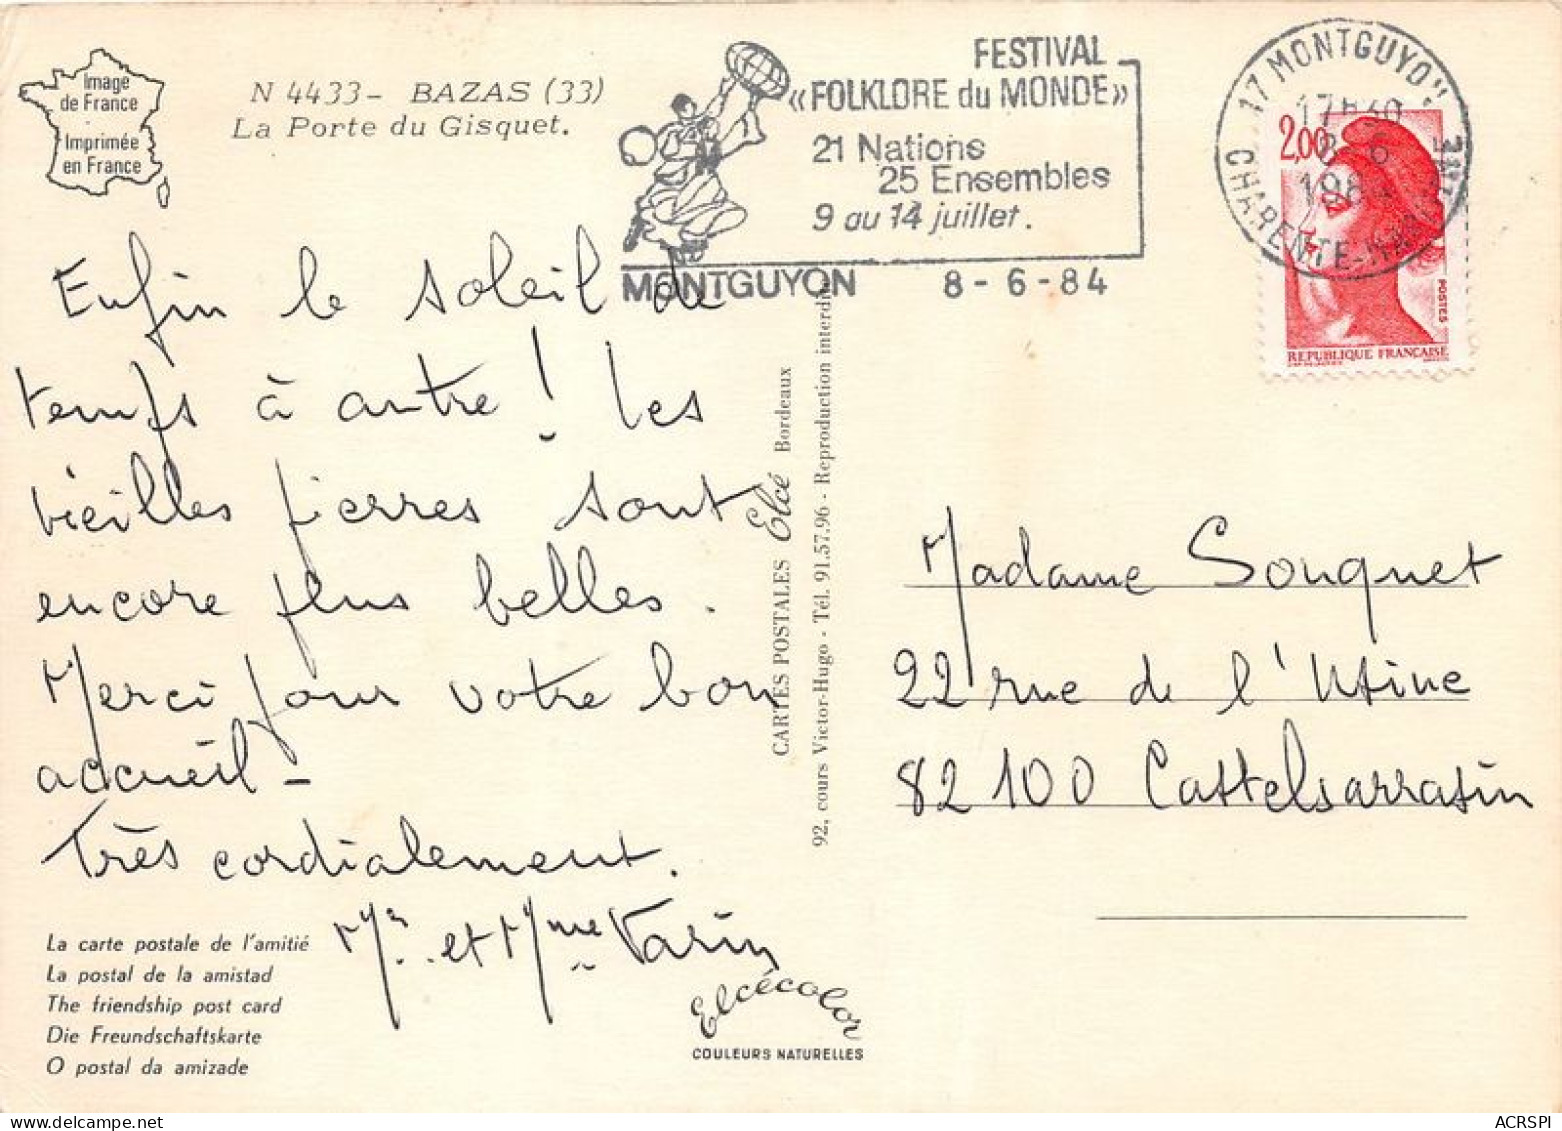 Image
de France
-
Imprimée
en France
N 4433 - BAZAS (33)
La Porte du Gisquet.
FESTIVAL
«FOLKLORE du MONDE»
21 Nations
25 Ensembles
9 au 14 juillet.
MONTGUYON 8-6-84
17 MONTGUYON
17h30
8-6
1984
CHARENTE-MARITIME
2,00
POSTES
REPUBLIQUE FRANÇAISE
Enfin le soleil de
temps à autre ! Les
vieilles pierres sont
encore plus belles.
Merci pour votre bon
accueil -
Très cordialement.
Mr. et Mme Varin
CARTES POSTALES Elcé Bordeaux
92, cours Victor-Hugo - Tél. 91.57.96 - Reproduction interdite
Madame Souquet
22 rue de l'Usine
82100 Castelsarrasin
La carte postale de l'amitié
La postal de la amistad
The friendship post card
Die Freundschaftskarte
O postal da amizade
Elcécolor
COULEURS NATURELLES
ACRSPI